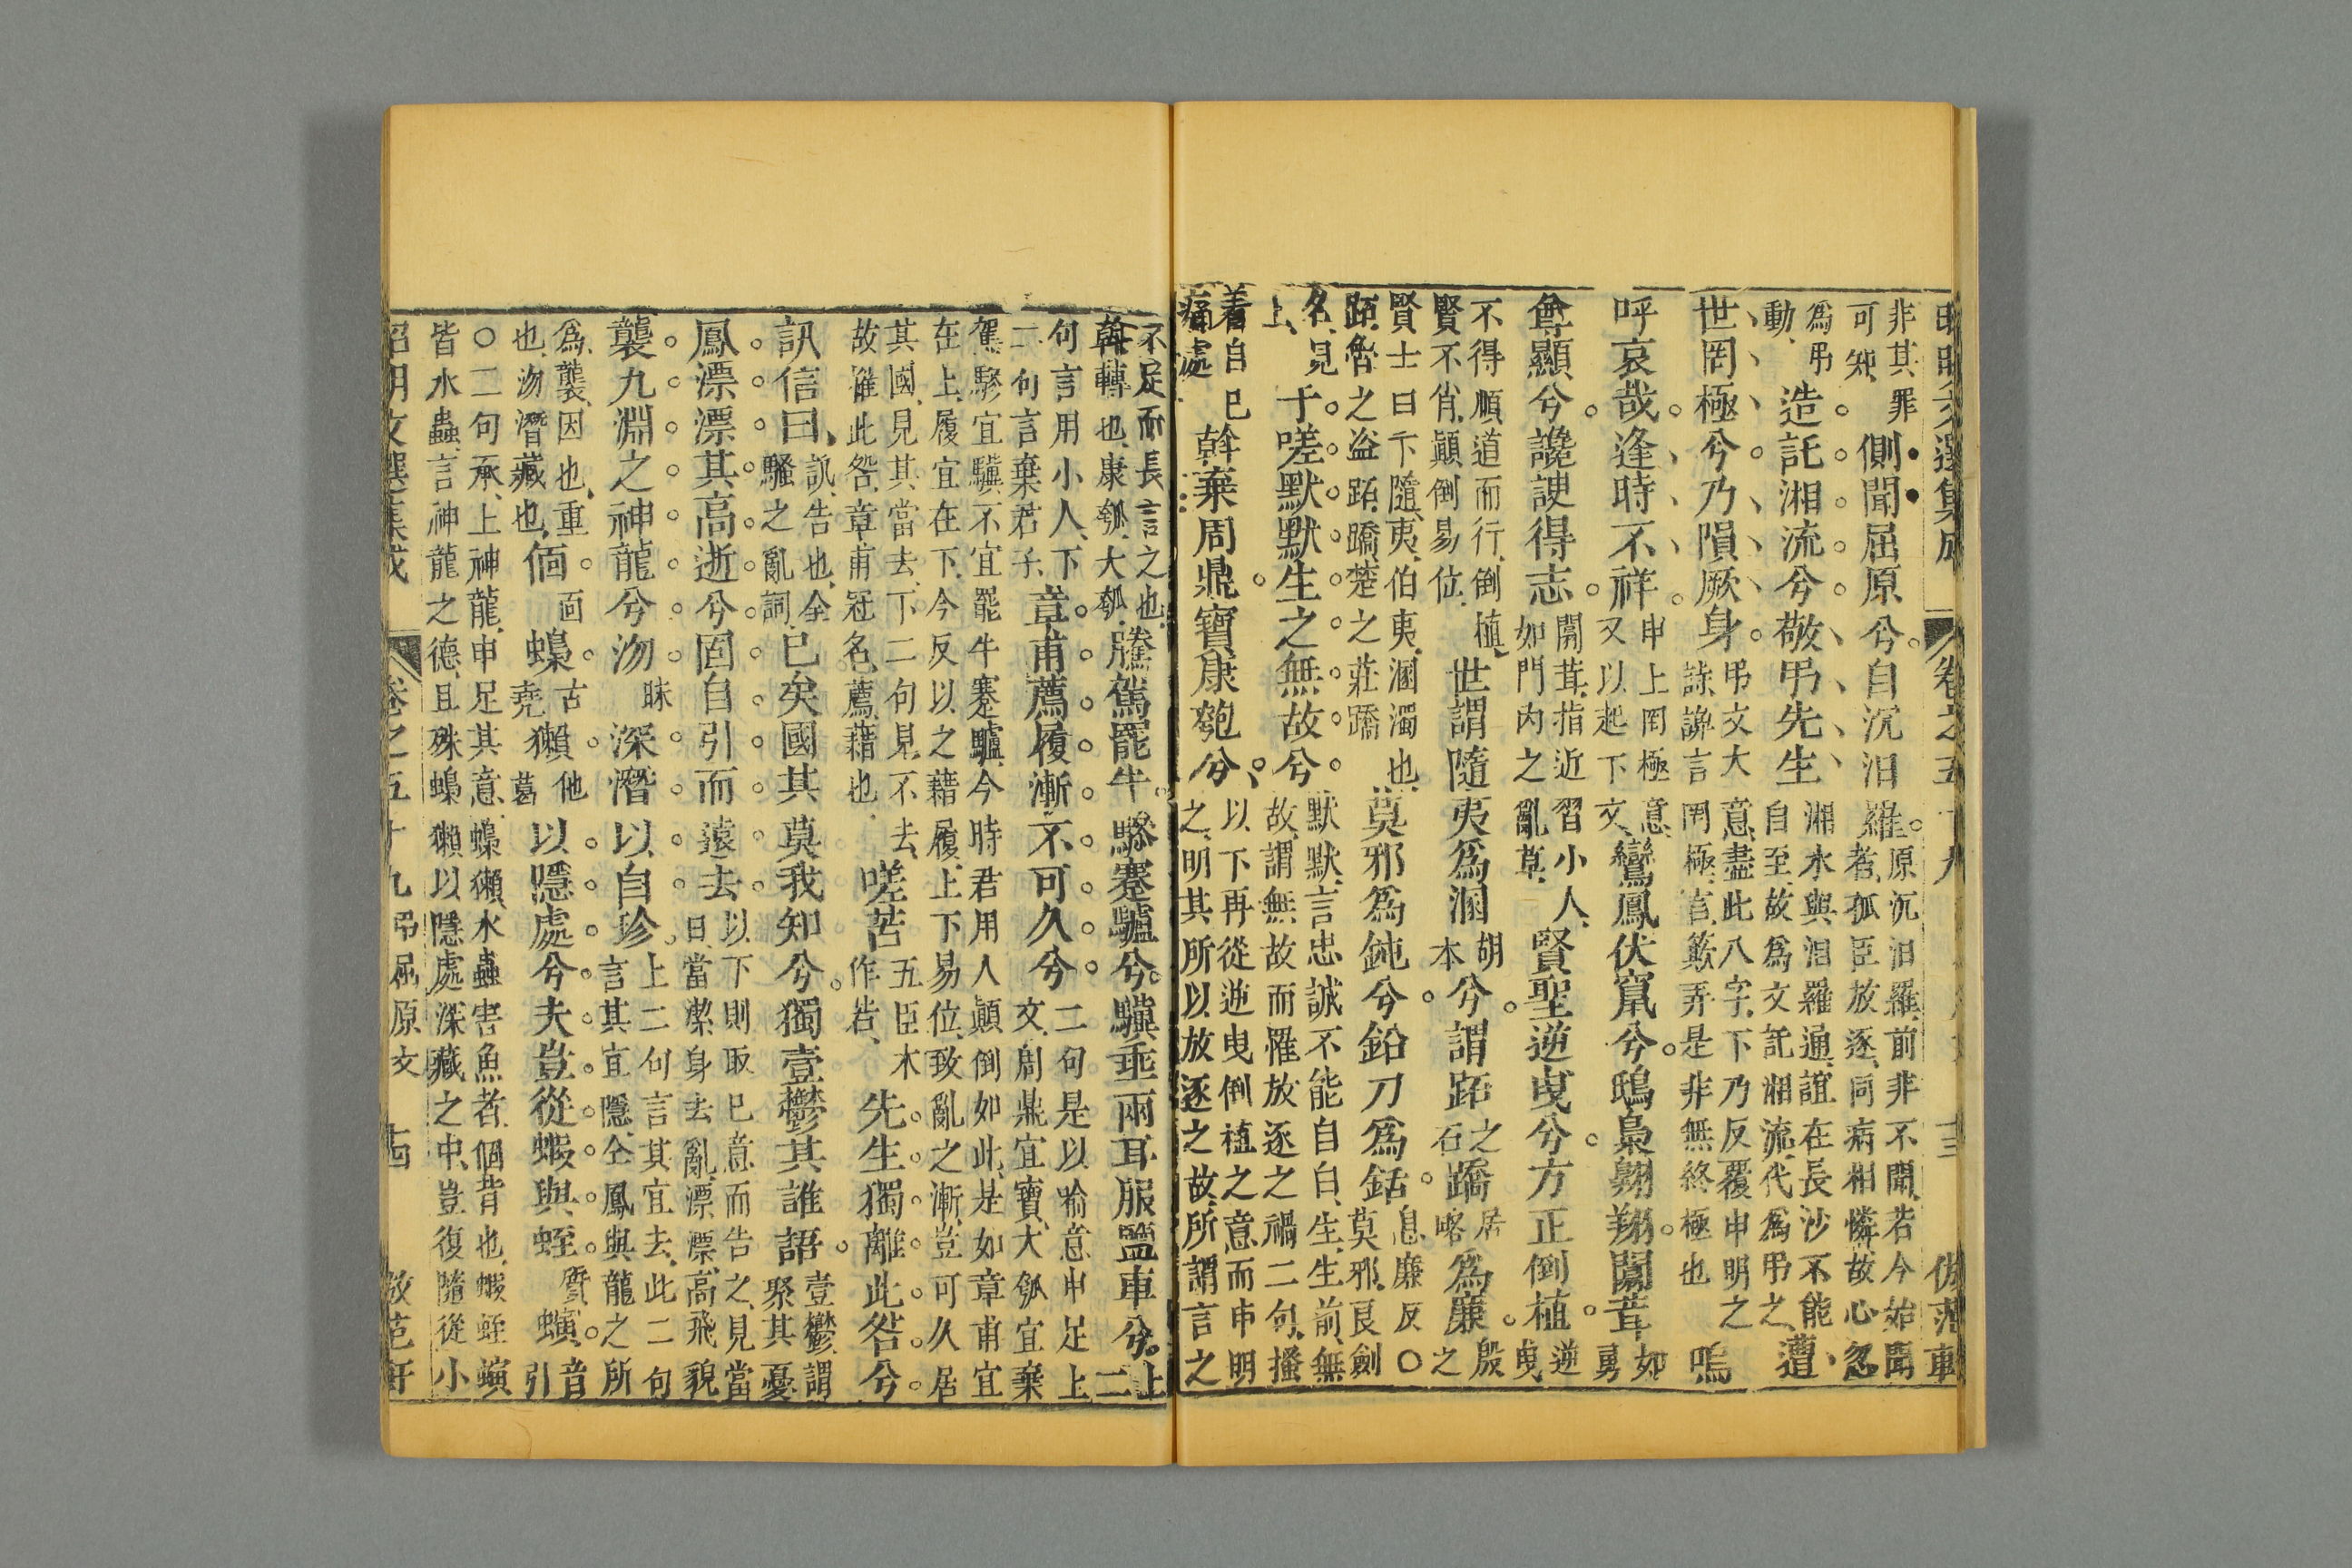 非其罪
可知、
側聞屈原兮自沉汨羅
原沉汨羅、前非不聞、若今始聞
者、孤臣放逐、同病相憐、故心忽
為弔
動、
造託湘流兮敬弔先生
湘水與汨羅通、誼在長沙不能
自至、故為文託湘流、代為弔之、
遭
世罔極兮乃隕厥身
弔文大意盡此八字、下乃反覆申明之
誶、讒言罔極、言欺弄是非無終極也
嗚
呼哀哉逢時不祥
申上罔極意、
又以起下文、
鸞鳳伏竄兮鴟梟翱翔闒茸
如
勇
尊顯兮讒諛得志
闒茸、指近習小人、
如門內之亂草、
賢聖逆曳兮方正倒植
逆
曳
不得順道而行、倒植、
賢不肖顛倒易位、
世謂隨夷為溷
胡
本
兮謂跖
之
石
蹻
居
略
為廉
殷
之
賢士曰卞隨、夷、伯夷、溷、濁也、
跖、魯之盜跖、蹻、楚之莊蹻
莫邪為鈍兮鉛刀為銛
息廉反〇
莫邪、良劍
名、見
上、
于嗟默默生之無故兮
默默、言忠誠不能自白、生、生前、無
故、謂無故而罹放逐之禍二句、搔
着自已
痛處
斡棄周鼎寶康瓠兮、
以下再從逆曳倒植之意而申明
之、明其所以放逐之故、所謂言之
昭明文選集成
卷之五十九
弔屈原文
十三
倣范軒
不足而長言之也
斡、轉也、康瓠、大瓠、
騰駕罷牛驂蹇驢兮驥垂兩耳服鹽車兮
上
二
句言用小人、下
二句言棄君子、
章甫薦履漸不可久兮
二句是以喻意申足上
文、周鼎宜寶、大瓠宜棄
駕驂宜驥、不宜罷牛蹇驢、今時君用人顛倒如此、是如章甫宜
在上、履宜在下、今反以之藉履、上下易位、致亂之漸、豈可久居
其國、見其當去、下二句見不去、
故離此咎、章甫冠名、薦、藉也、
嗟苦
五臣木
作若、
先生獨離此咎兮
訊信曰、
訊、告也、全
騷之亂詞、
已矣國其莫我知兮獨壹鬱其誰語
壹鬱、謂
聚其憂
鳳漂漂其高逝兮固自引而遠去
以下則取已意而告之、見當
日當潔身去亂、漂漂、高飛貌
襲九淵之神龍兮沕
昧
深潛以自珍
上二句言其宜去、此二句
言其宜隱、仝鳳與龍之所
為、襲、因也、重
也、沕、潛藏也、
偭
面
蟂
古
堯
獺
他
葛
以隱處兮夫豈從蝦與蛭
質
螾
音
引
〇二句承上神龍、申足其意、蟂獺、水蟲害魚者、偭、背也、蝦蛭螾
皆水蟲、言神龍之德、且殊蟂獺以隱處深藏之中、豈復隨從小
昭明文選集成
卷之五十九
弔屈原文
十四
倣范軒